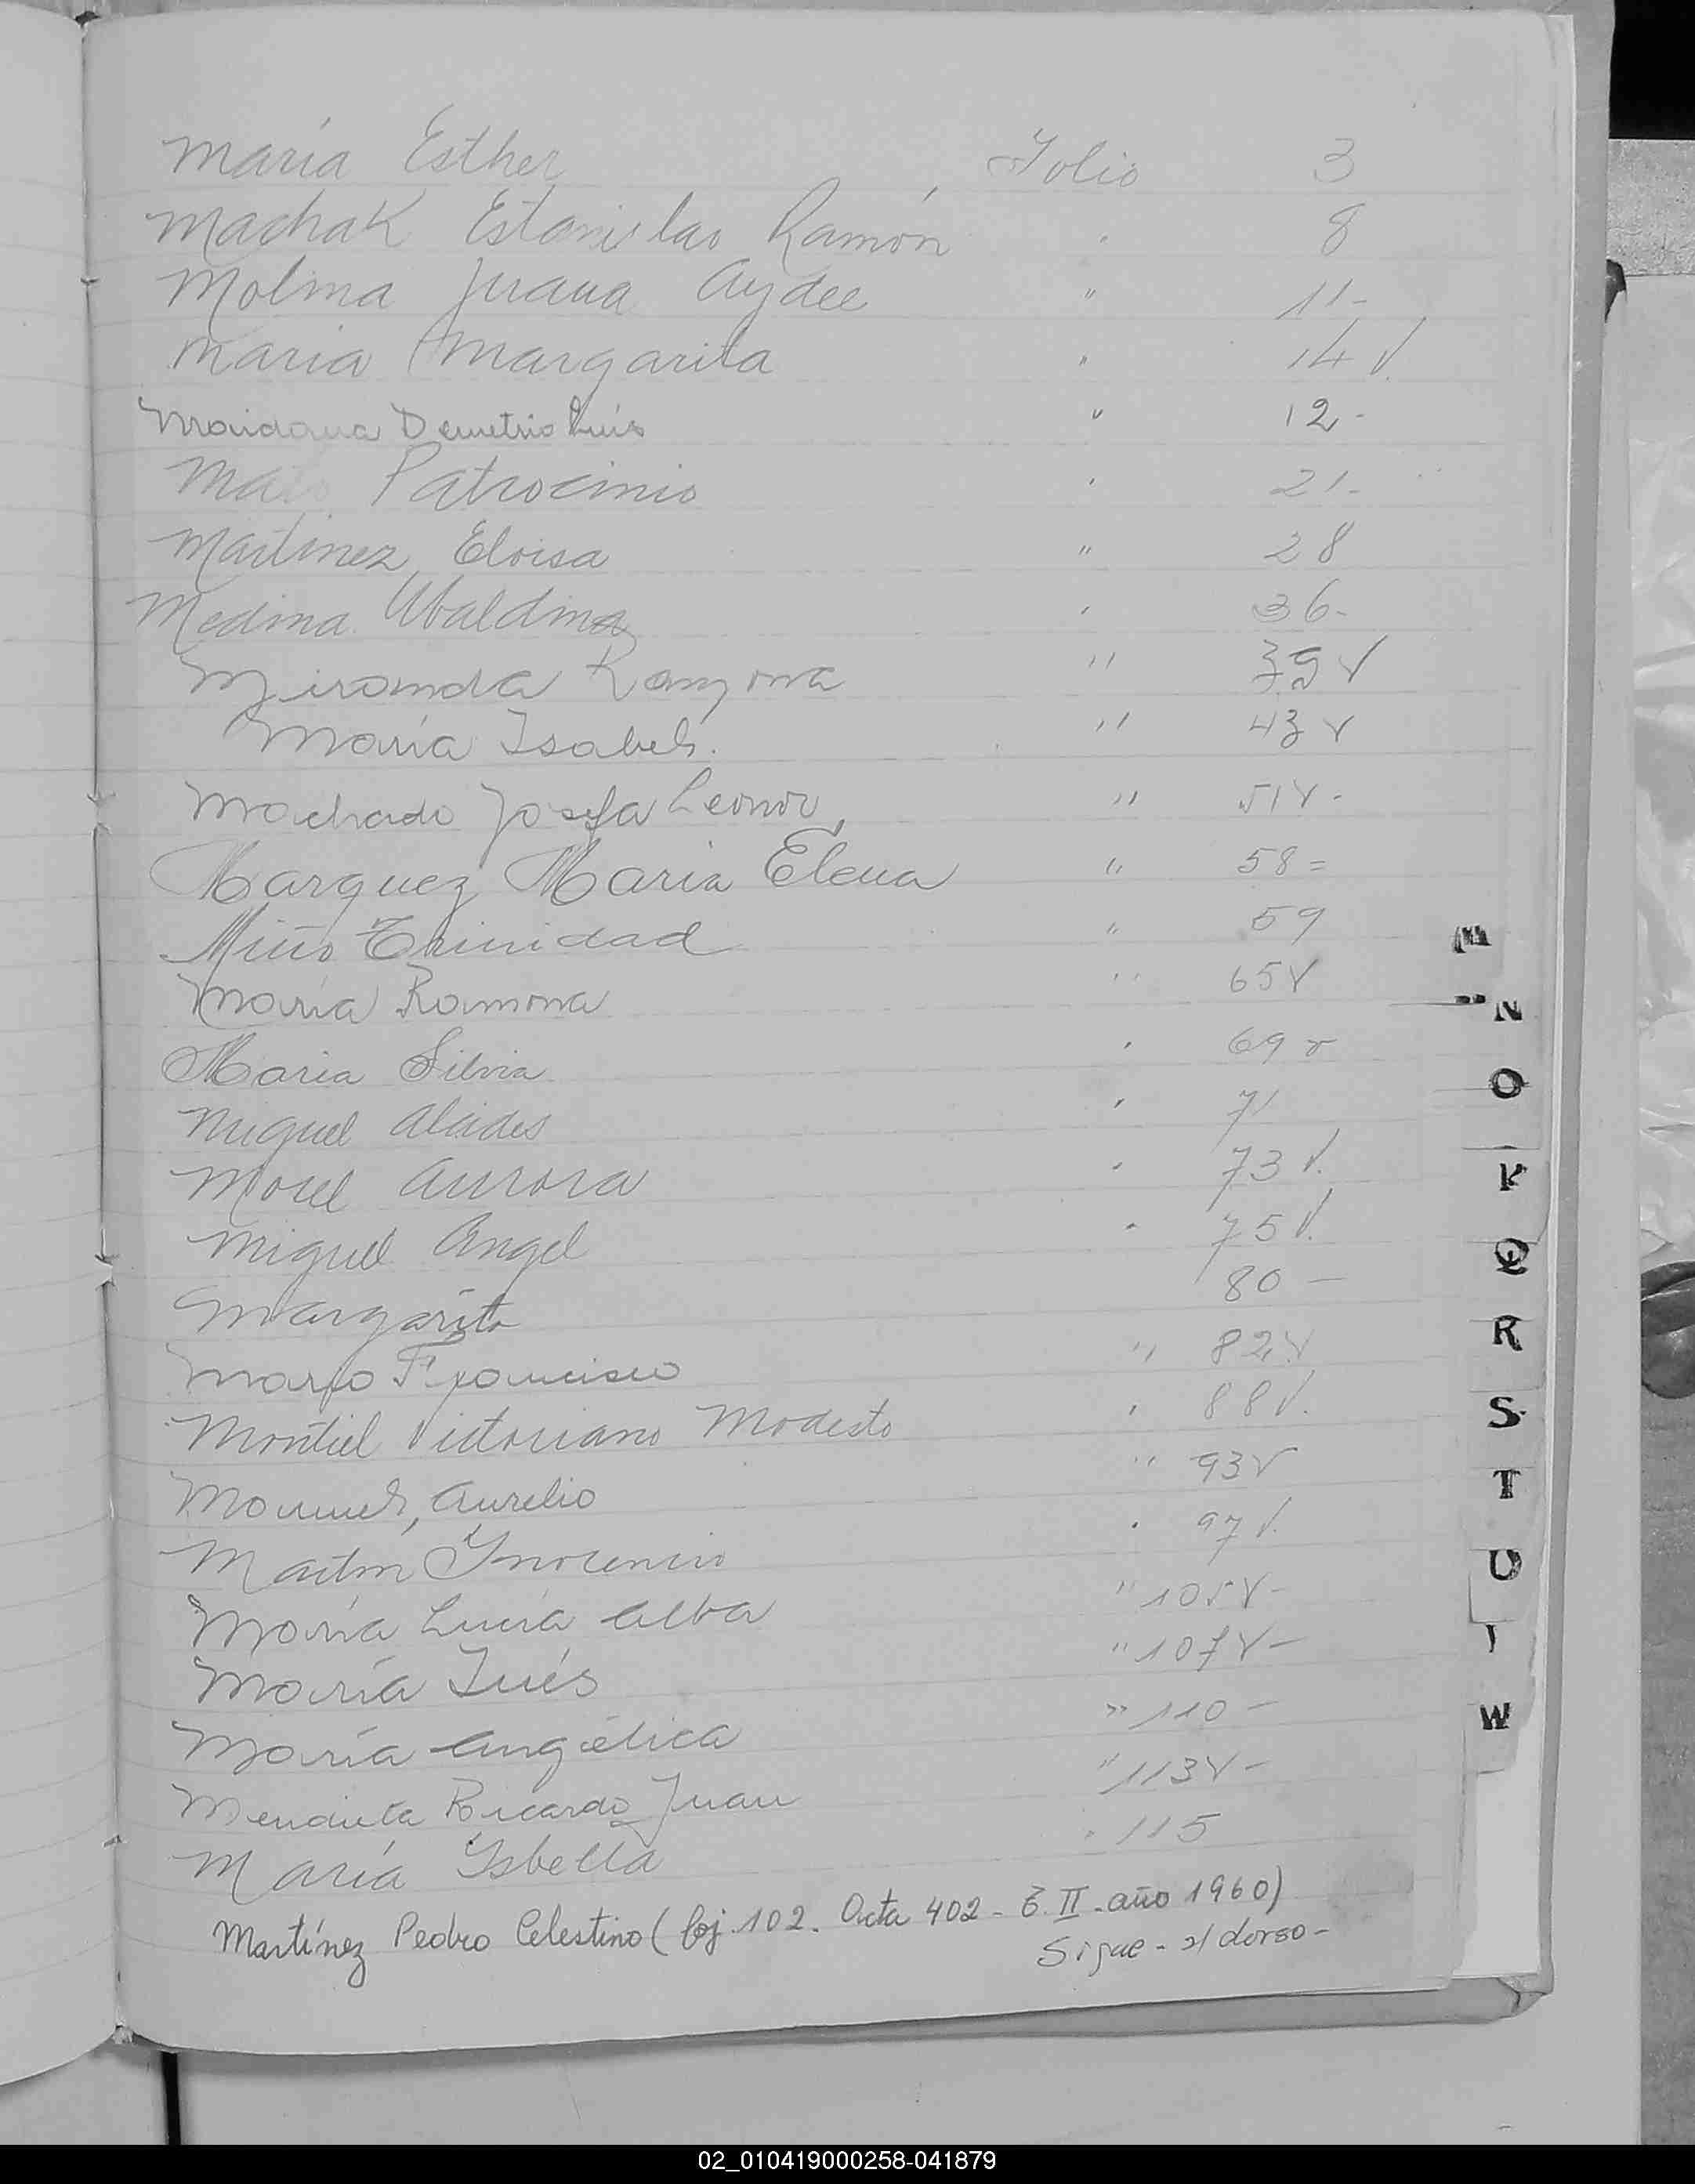 María Esther Folio 3
Machak Estanislao Ramón " 8
Molina Juana Aydee " 11-
María Margarita " 14 v.
Maidana Demetrio Luis " 12-
Patrocinio " 21-
Martinez, Eloisa " 28
Medina Ubaldina " 36-
Miranda Ramona " 39 v
María Isabel. " 43 v
Machado Josefa Leonor " 51 v-
Marquez María Elena " 58=
Miño Trinidad " 59
María Ramona " 65 v
Maria Silvia " 69 v
Miguel Alcides " 71
Morel Aurora " 73 v.
Miguel Angel " 75 v.
Margarita 80 -
Mario Francisco " 82 v
Montiel Victoriano Modesto " 88 v.
Manuel, Aurelio " 93 v
Martin Ynocencio " 97 v.
María Lucía Alba " 105 v-
María Inés " 107 v-
María Angélica " 110 -
Mendieta Ricardo Juan " 113 v-
María Ysbella " 115
Martínez Pedro Celestino (foj. 102. Acta 402 - T. II - año 1960)
Sigue - s/ dorso -
M
N
O
P
Q
R
S
T
U
W
02_010419000258-041879